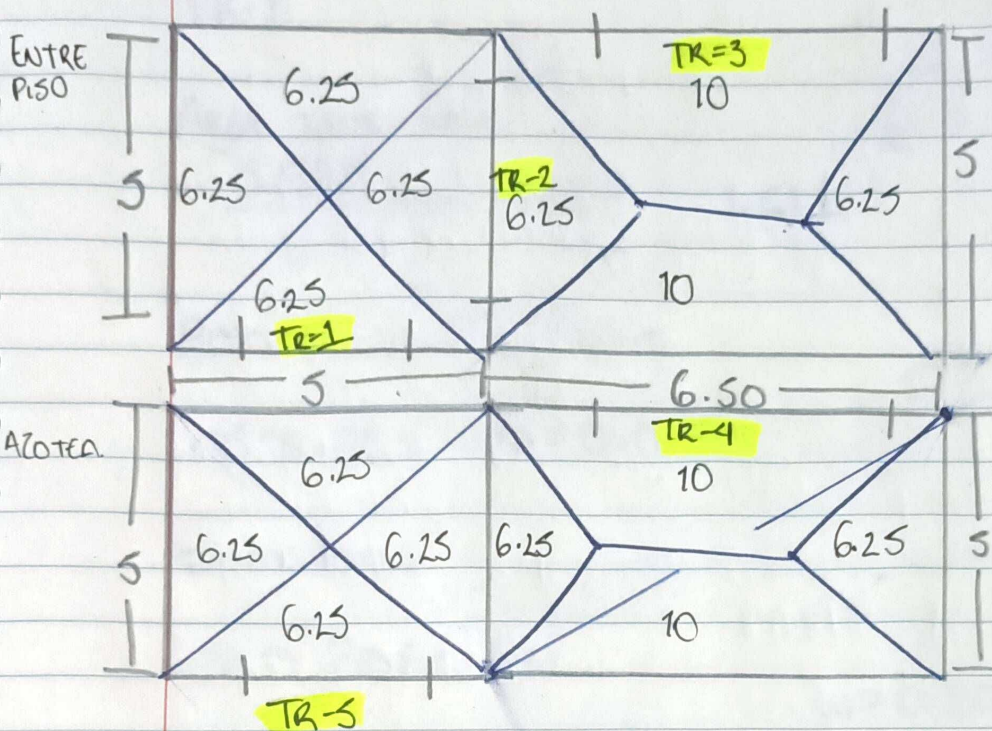 ENTRE
PISO
5
6.25
6.25
6.25
6.25
TR=1
TR=3
10
TR-2
6.25
6.25
10
5
5
6.50
AZOTEA.
5
6.25
6.25
6.25
6.25
TR-5
TR-4
10
6.25
6.25
10
5